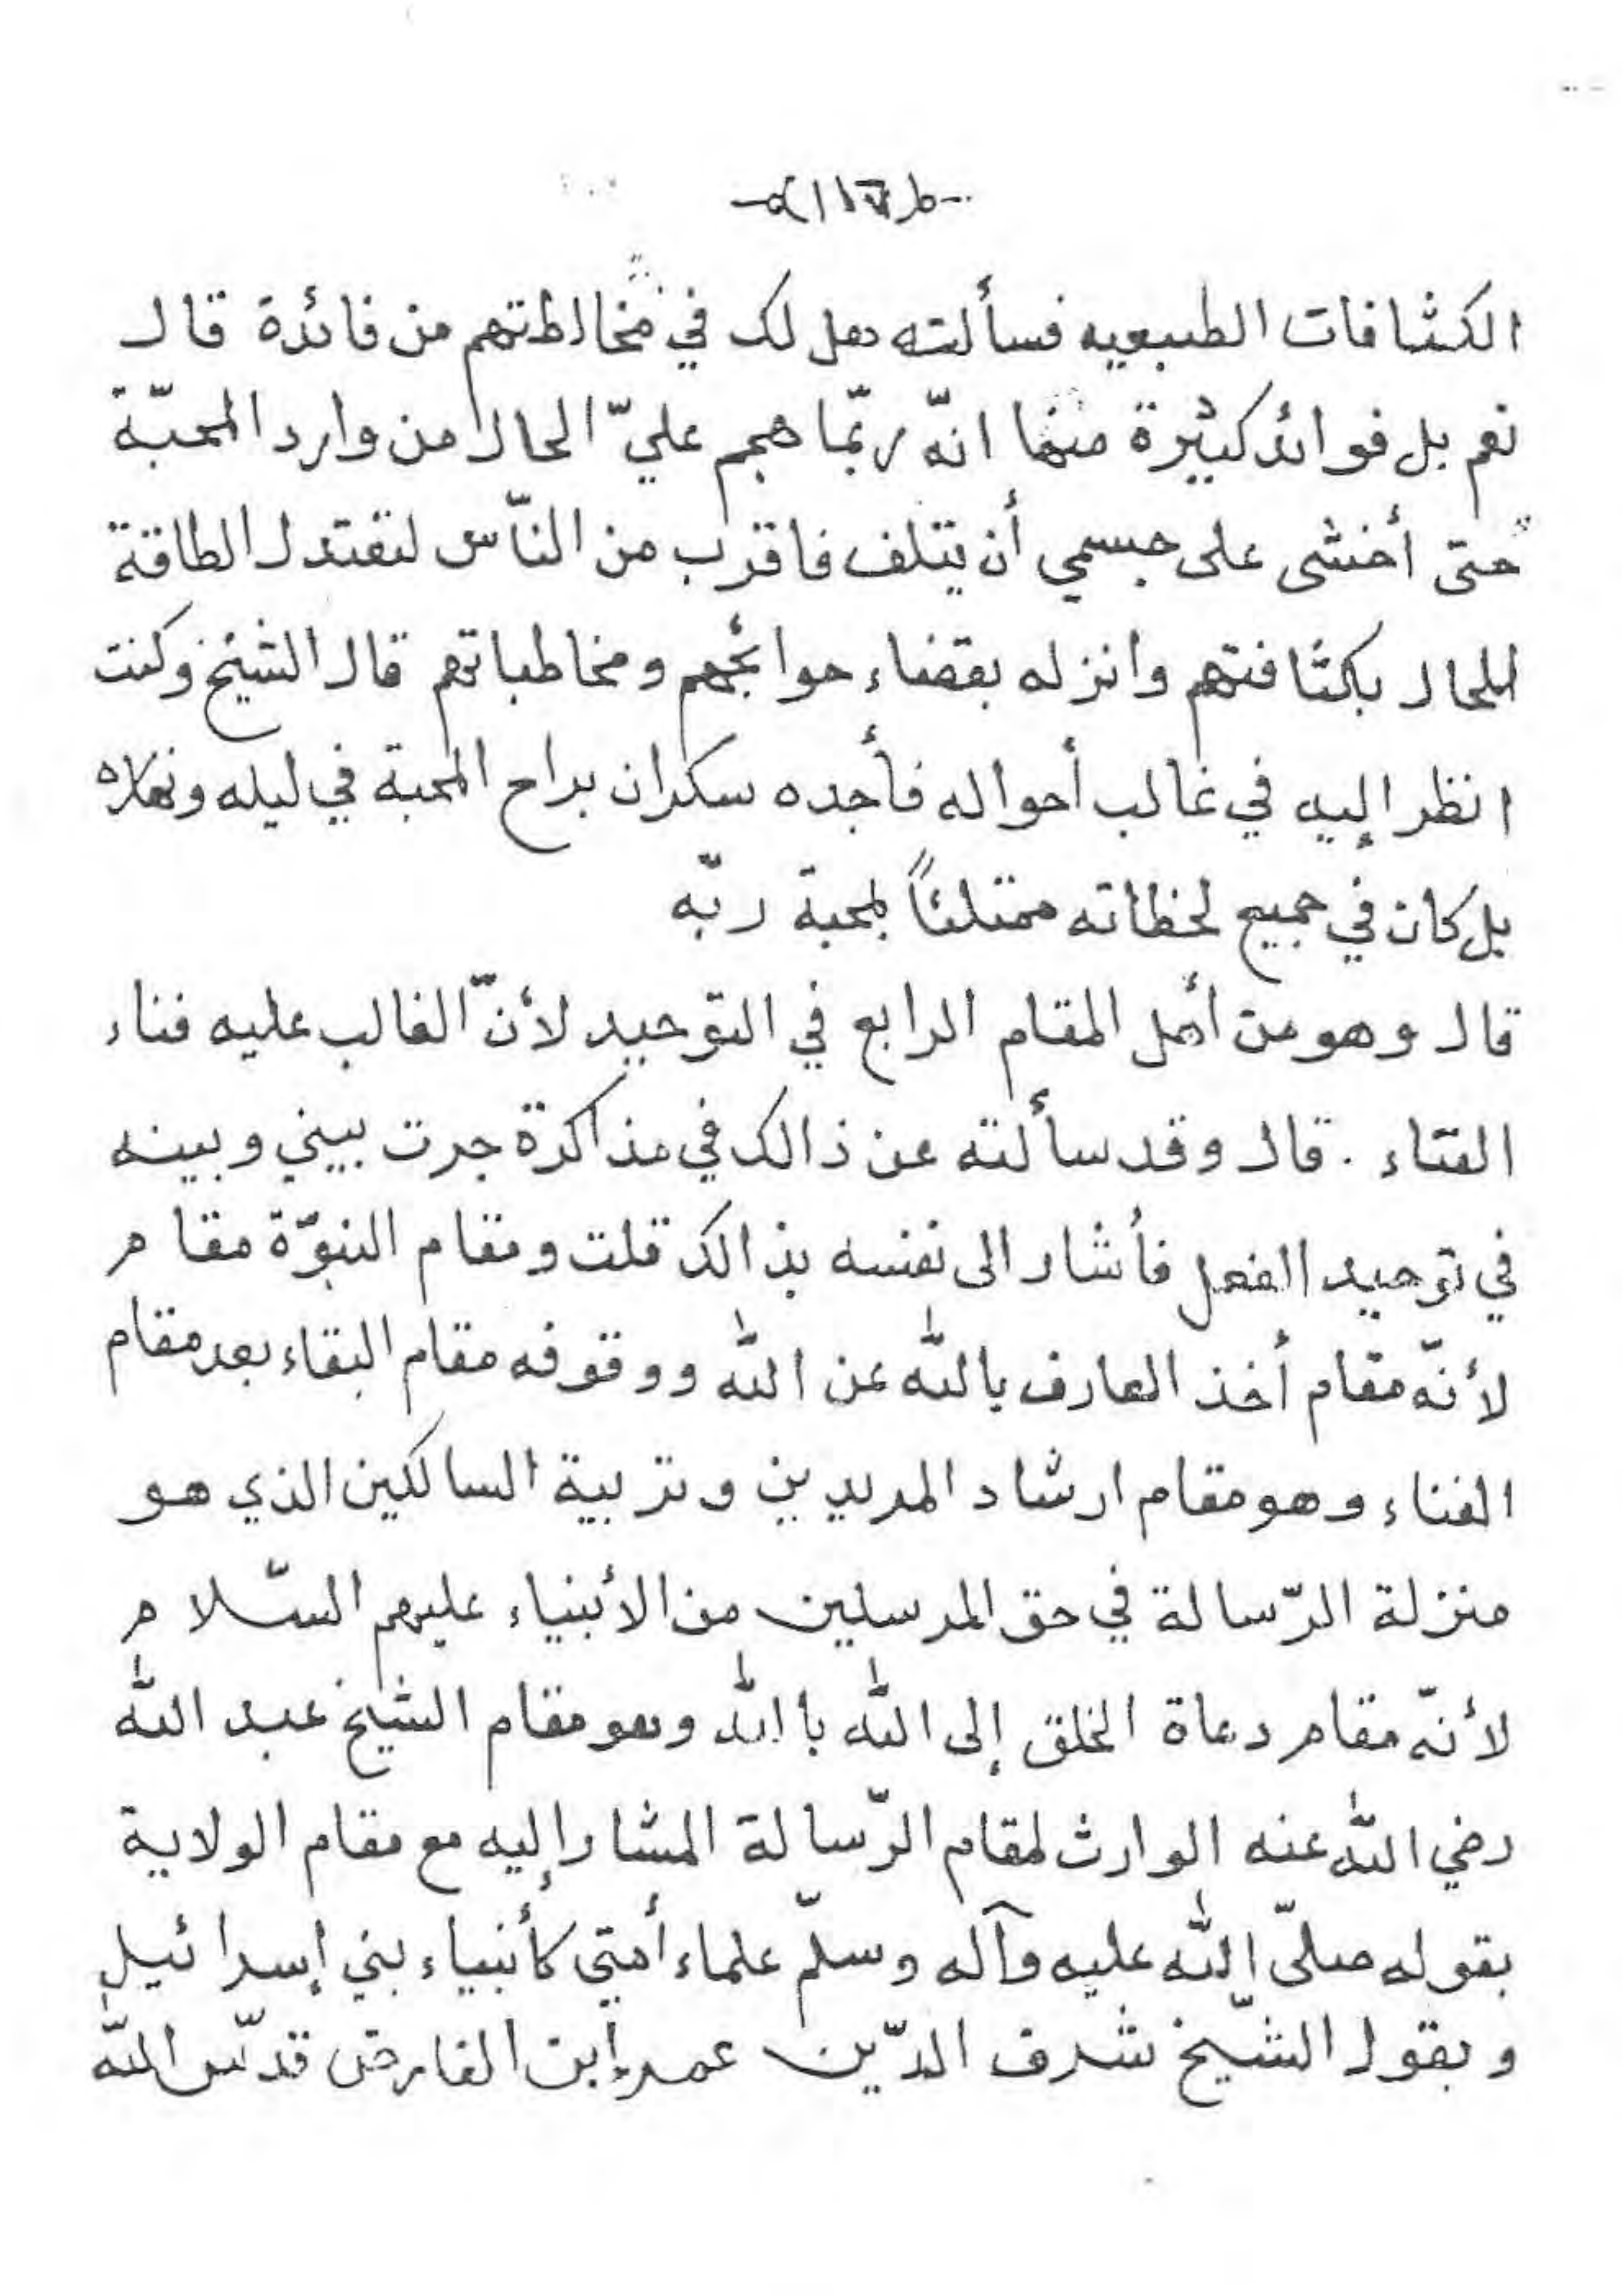 الكثافات الطبيعيه فسألته هل لك في مخالطتهم من فائدة قال
نعم بل فوائد كثيرة منها انّه ربّما هجم عليّ الحال من وارد المحبّة
حتى أخشى على جسمي أن يتلف فاقرب من النّاس لتعتدل الطاقة
للحال بكثافتهم وانزله بقضاء حوائجهم ومخاطباتهم قال الشيخ وكنت
انظر إليه في غالب أحواله فأجده سكران براح المحبة في ليله ونهاره
بل كان في جميع لحظاته ممتلئاً بمحبة ربّه
قال وهو من أهل المقام الرابع في التوحيد لأنّ الغالب عليه فناء
الفناء . قال وقد سألته عن ذالك في مذاكرة جرت بيني وبينه
في توحيد الفعل فأشار الى نفسه بذالك قلت ومقام النبوّة مقام
لأنّه مقام أخذ العارف بالله عن الله ووقوفه مقام البقاء بعد مقام
الفناء وهو مقام ارشاد المريدين وتربية السالكين الذي هو
منزلة الرّسالة في حق المرسلين من الأنبياء عليهم السّلام
لأنّه مقام دعاة الخلق إلى الله باالله وهو مقام الشيخ عبد الله
رضي الله عنه الوارث لمقام الرّسالة المشار إليه مع مقام الولاية
بقوله صلّى الله عليه وآله وسلّم علماء أمتي كأنبياء بني إسرائيل
وبقول الشّيخ شرف الدّين عمر إبن الفارض قدّس الله